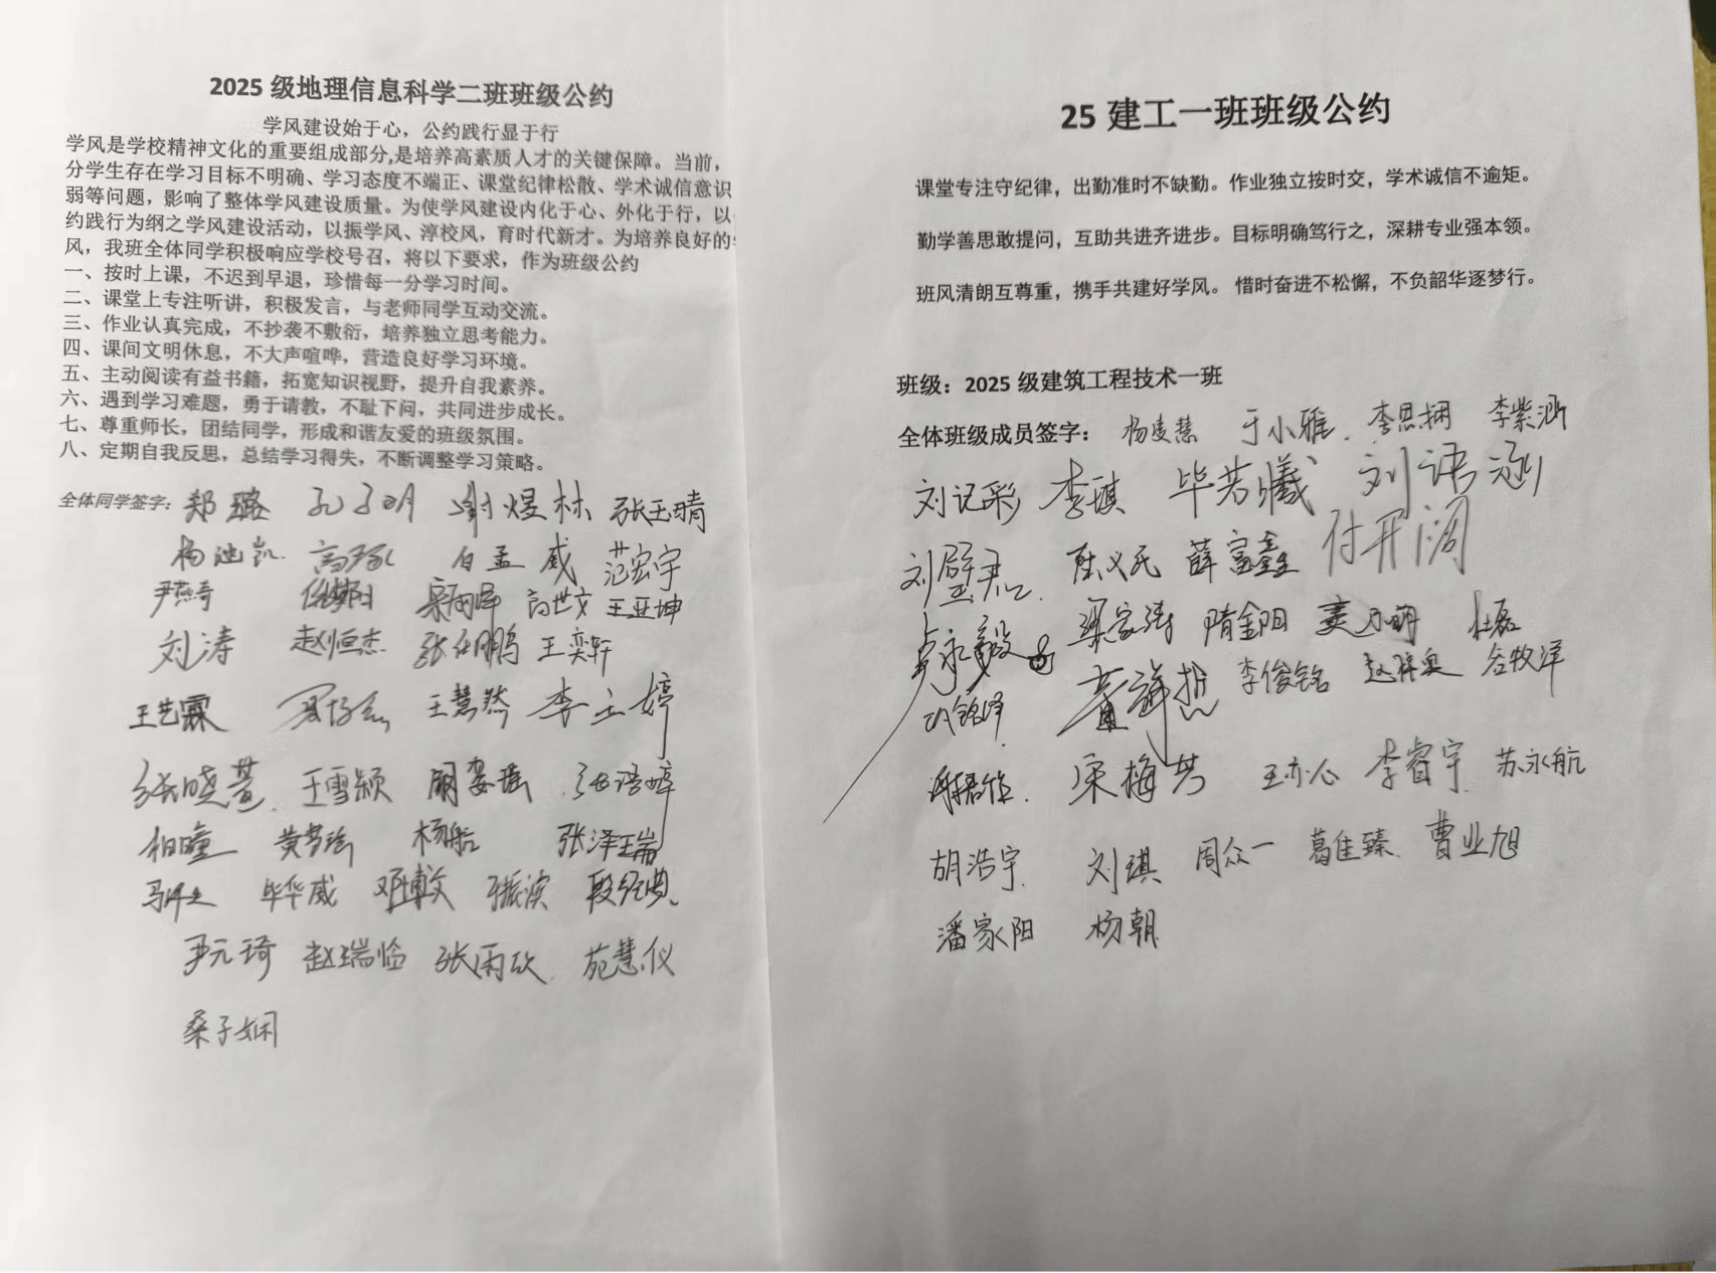 2025 级地理信息科学二班班级公约
学风建设始于心，公约践行显于行
学风是学校精神文化的重要组成部分,是培养高素质人才的关键保障。当前，
分学生存在学习目标不明确、学习态度不端正、课堂纪律松散、学术诚信意识
弱等问题，影响了整体学风建设质量。为使学风建设内化于心、外化于行，以
约践行为纲之学风建设活动，以振学风、淳校风，育时代新才。为培养良好的
风，我班全体同学积极响应学校号召，将以下要求，作为班级公约
一、按时上课，不迟到早退，珍惜每一分学习时间。
二、课堂上专注听讲，积极发言，与老师同学互动交流。
三、作业认真完成，不抄袭不敷衍，培养独立思考能力。
四、课间文明休息，不大声喧哗，营造良好学习环境。
五、主动阅读有益书籍，拓宽知识视野，提升自我素养。
六、遇到学习难题，勇于请教，不耻下问，共同进步成长。
七、尊重师长，团结同学，形成和谐友爱的班级氛围。
八、定期自我反思，总结学习得失，不断调整学习策略。
全体同学签字：郑璐 孔子明 谢煜林 张玉晴
杨迪凯 白孟威 范宏宇
尹燕奇 高世文 王亚坤
刘涛 赵恒杰 王奕轩
王艺霖 王慧然 李立婷
张晓萱 王雪颖
杨航 张泽瑞
毕华威 邓博文 张振滨
尹元琦 赵瑞临 张雨欣 苑慧仪
桑子娴
25 建工一班班级公约
课堂专注守纪律，出勤准时不缺勤。作业独立按时交，学术诚信不逾矩。
勤学善思敢提问，互助共进齐进步。目标明确笃行之，深耕专业强本领。
班风清朗互尊重，携手共建好学风。 惜时奋进不松懈，不负韶华逐梦行。
班级：2025 级建筑工程技术一班
全体班级成员签字： 于小雅 李紫涵
刘记彩 李琪 毕若曦 刘语涵
陈义民 薛富鑫 付开阔
卢永毅 梁家涛 隋金阳 杜磊
李俊铭 谷牧洋
宋梅芳 王亦心 李睿宇 苏永航
胡浩宇 刘琪 周众一 葛佳臻 曹业旭
潘家阳 杨朝